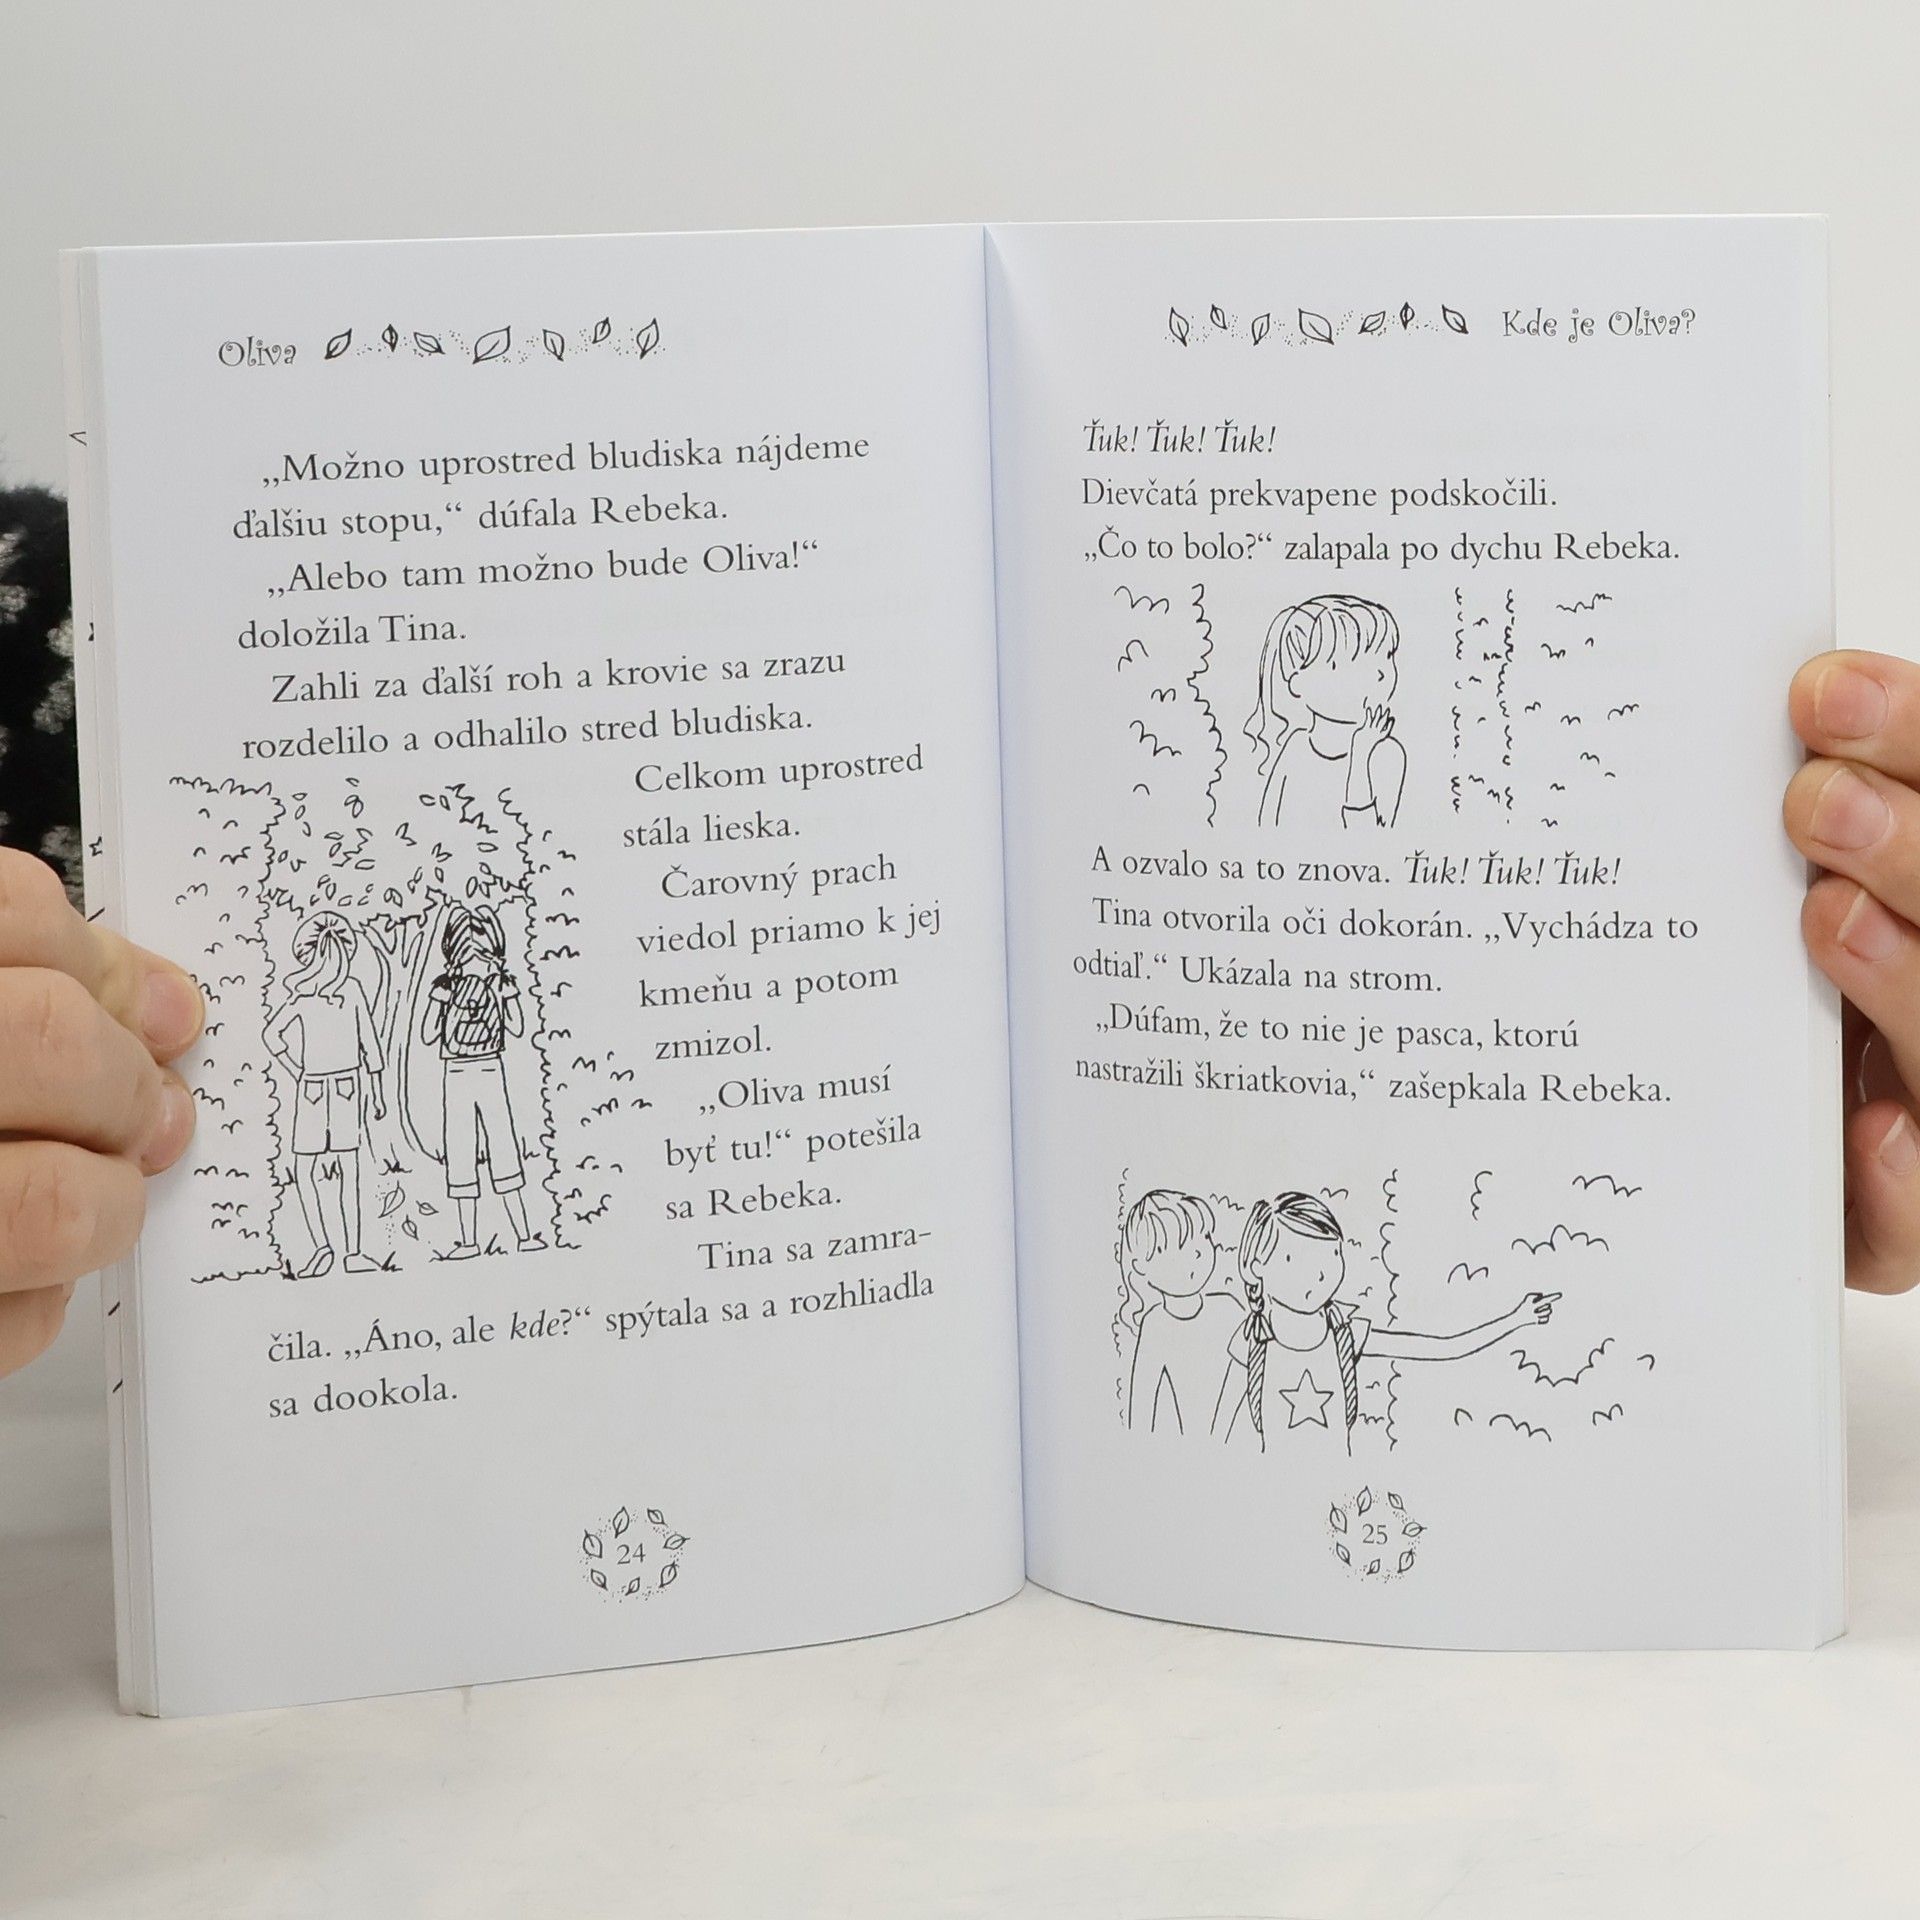 Oliva
„Možno uprostred bludiska nájdeme
ďalšiu stopu,“ dúfala Rebeka.
„Alebo tam možno bude Oliva!“
doložila Tina.
Zahli za ďalší roh a krovie sa zrazu
rozdelilo a odhalilo stred bludiska.
Celkom uprostred
stála lieska.
Čarovný prach
viedol priamo k jej
kmeňu a potom
zmizol.
„Oliva musí
byť tu!“ potešila
sa Rebeka.
Tina sa zamra-
čila. „Áno, ale kde?“ spýtala sa a rozhliadla
sa dookola.
24
Kde je Oliva?
Ťuk! Ťuk! Ťuk!
Dievčatá prekvapene podskočili.
„Čo to bolo?“ zalapala po dychu Rebeka.
A ozvalo sa to znova. Ťuk! Ťuk! Ťuk!
Tina otvorila oči dokorán. „Vychádza to
odtiaľ.“ Ukázala na strom.
„Dúfam, že to nie je pasca, ktorú
nastražili škriatkovia,“ zašepkala Rebeka.
25